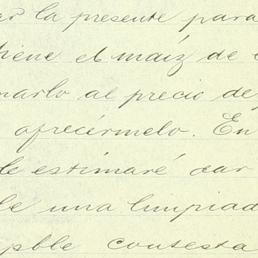 la presente para
tiene el maíz de
marlo al precio de
ofrecérmelo. En
le estimaré dar
una limpiad
pble contesta